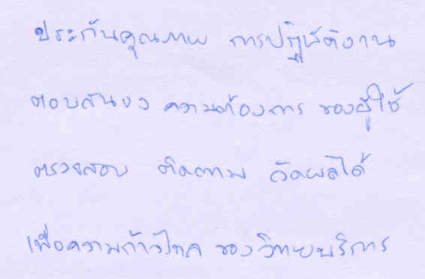 ประกันคุณภาพ การปฏิบัติงาน
ตอบสนอง ความต้องการ ของผู้ใช้
ตรวจสอบ ติดตาม วัดผลได้
เพื่อความก้าวไกล ของวิทยบริการ